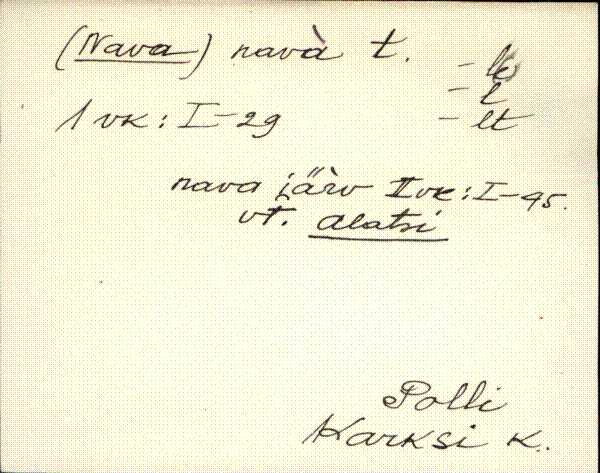 (Nava) navà t. -le
-l
1 vk: I-29 -lt
nava järv II vk: I-95.
vt. Alatsi
Polli
Karksi k.